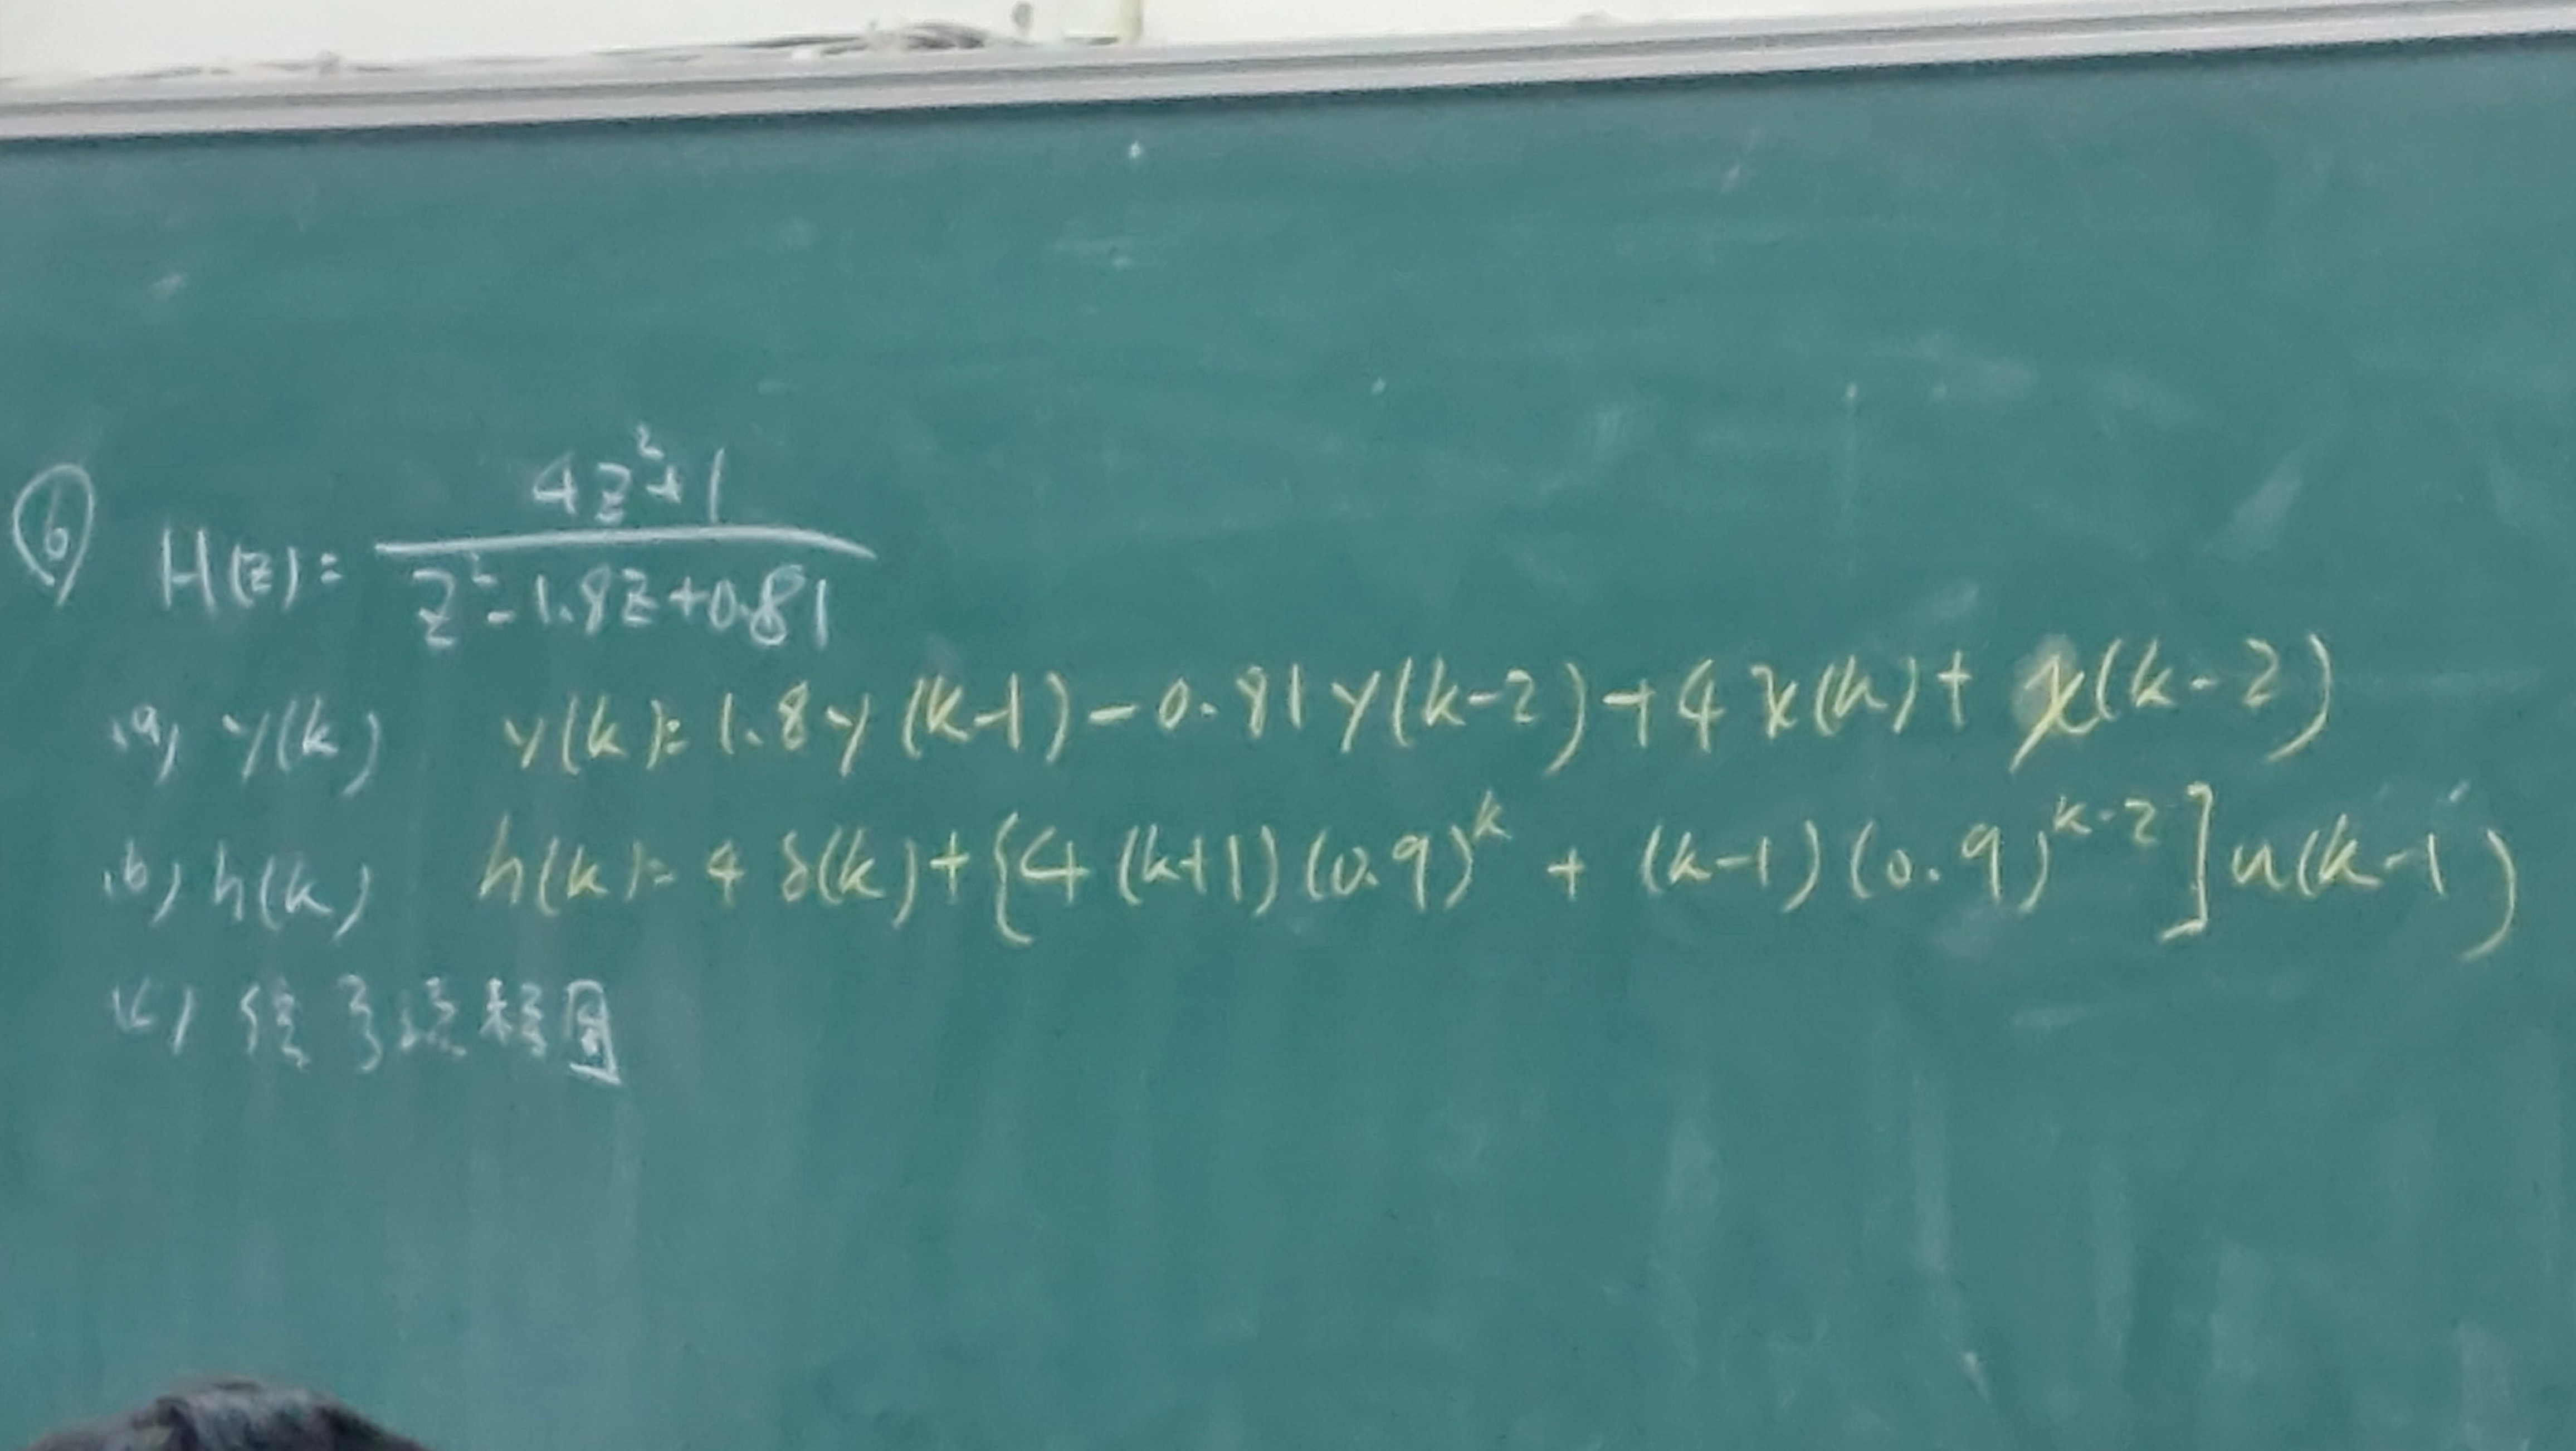 ⑥ H(z)= (4z²+1)/(z²-1.8z+0.81)
(a) y(k) y(k)=1.8y(k-1)-0.81y(k-2)+4x(k)+x(k-2)
(b) h(k) h(k)=4δ(k)+{4(k+1)(0.9)^k+(k-1)(0.9)^{k-2}]u(k-1)
(c) 信号流程圖